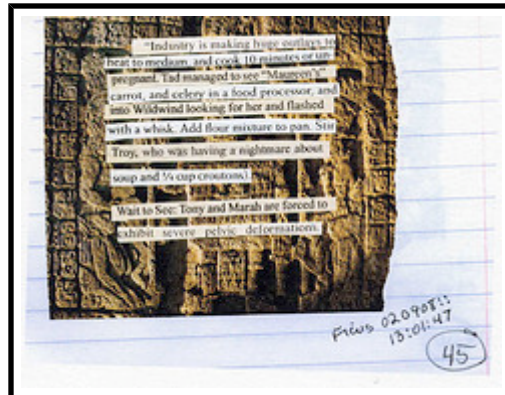 "Industry is making huge outlays to
heat to medium, and cook 10 minutes or un-
pregnant. Tad managed to see "Maureen's"
carrot, and celery in a food processor, and
into Wildwind looking for her and flashed
with a whisk. Add flour mixture to pan. Stir
Troy, who was having a nightmare about
soup and ¼ cup croutons).
Wait to See: Tony and Marah are forced to
exhibit severe pelvic deformations.
020908::
13:01:47
45